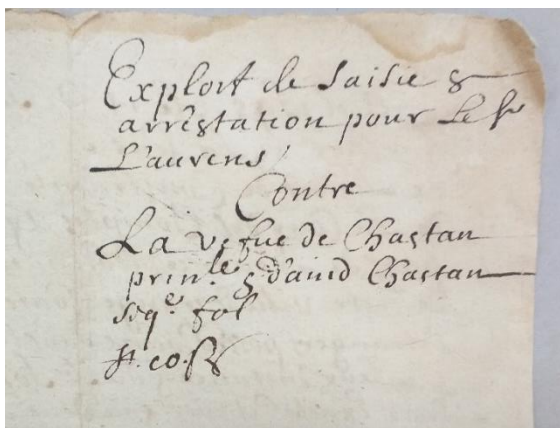 Exploit de saisie &
arrestation pour le Sr
Laurens
Contre
La vefue de Chastan
prin.le & Dauid Chastan
seq.e